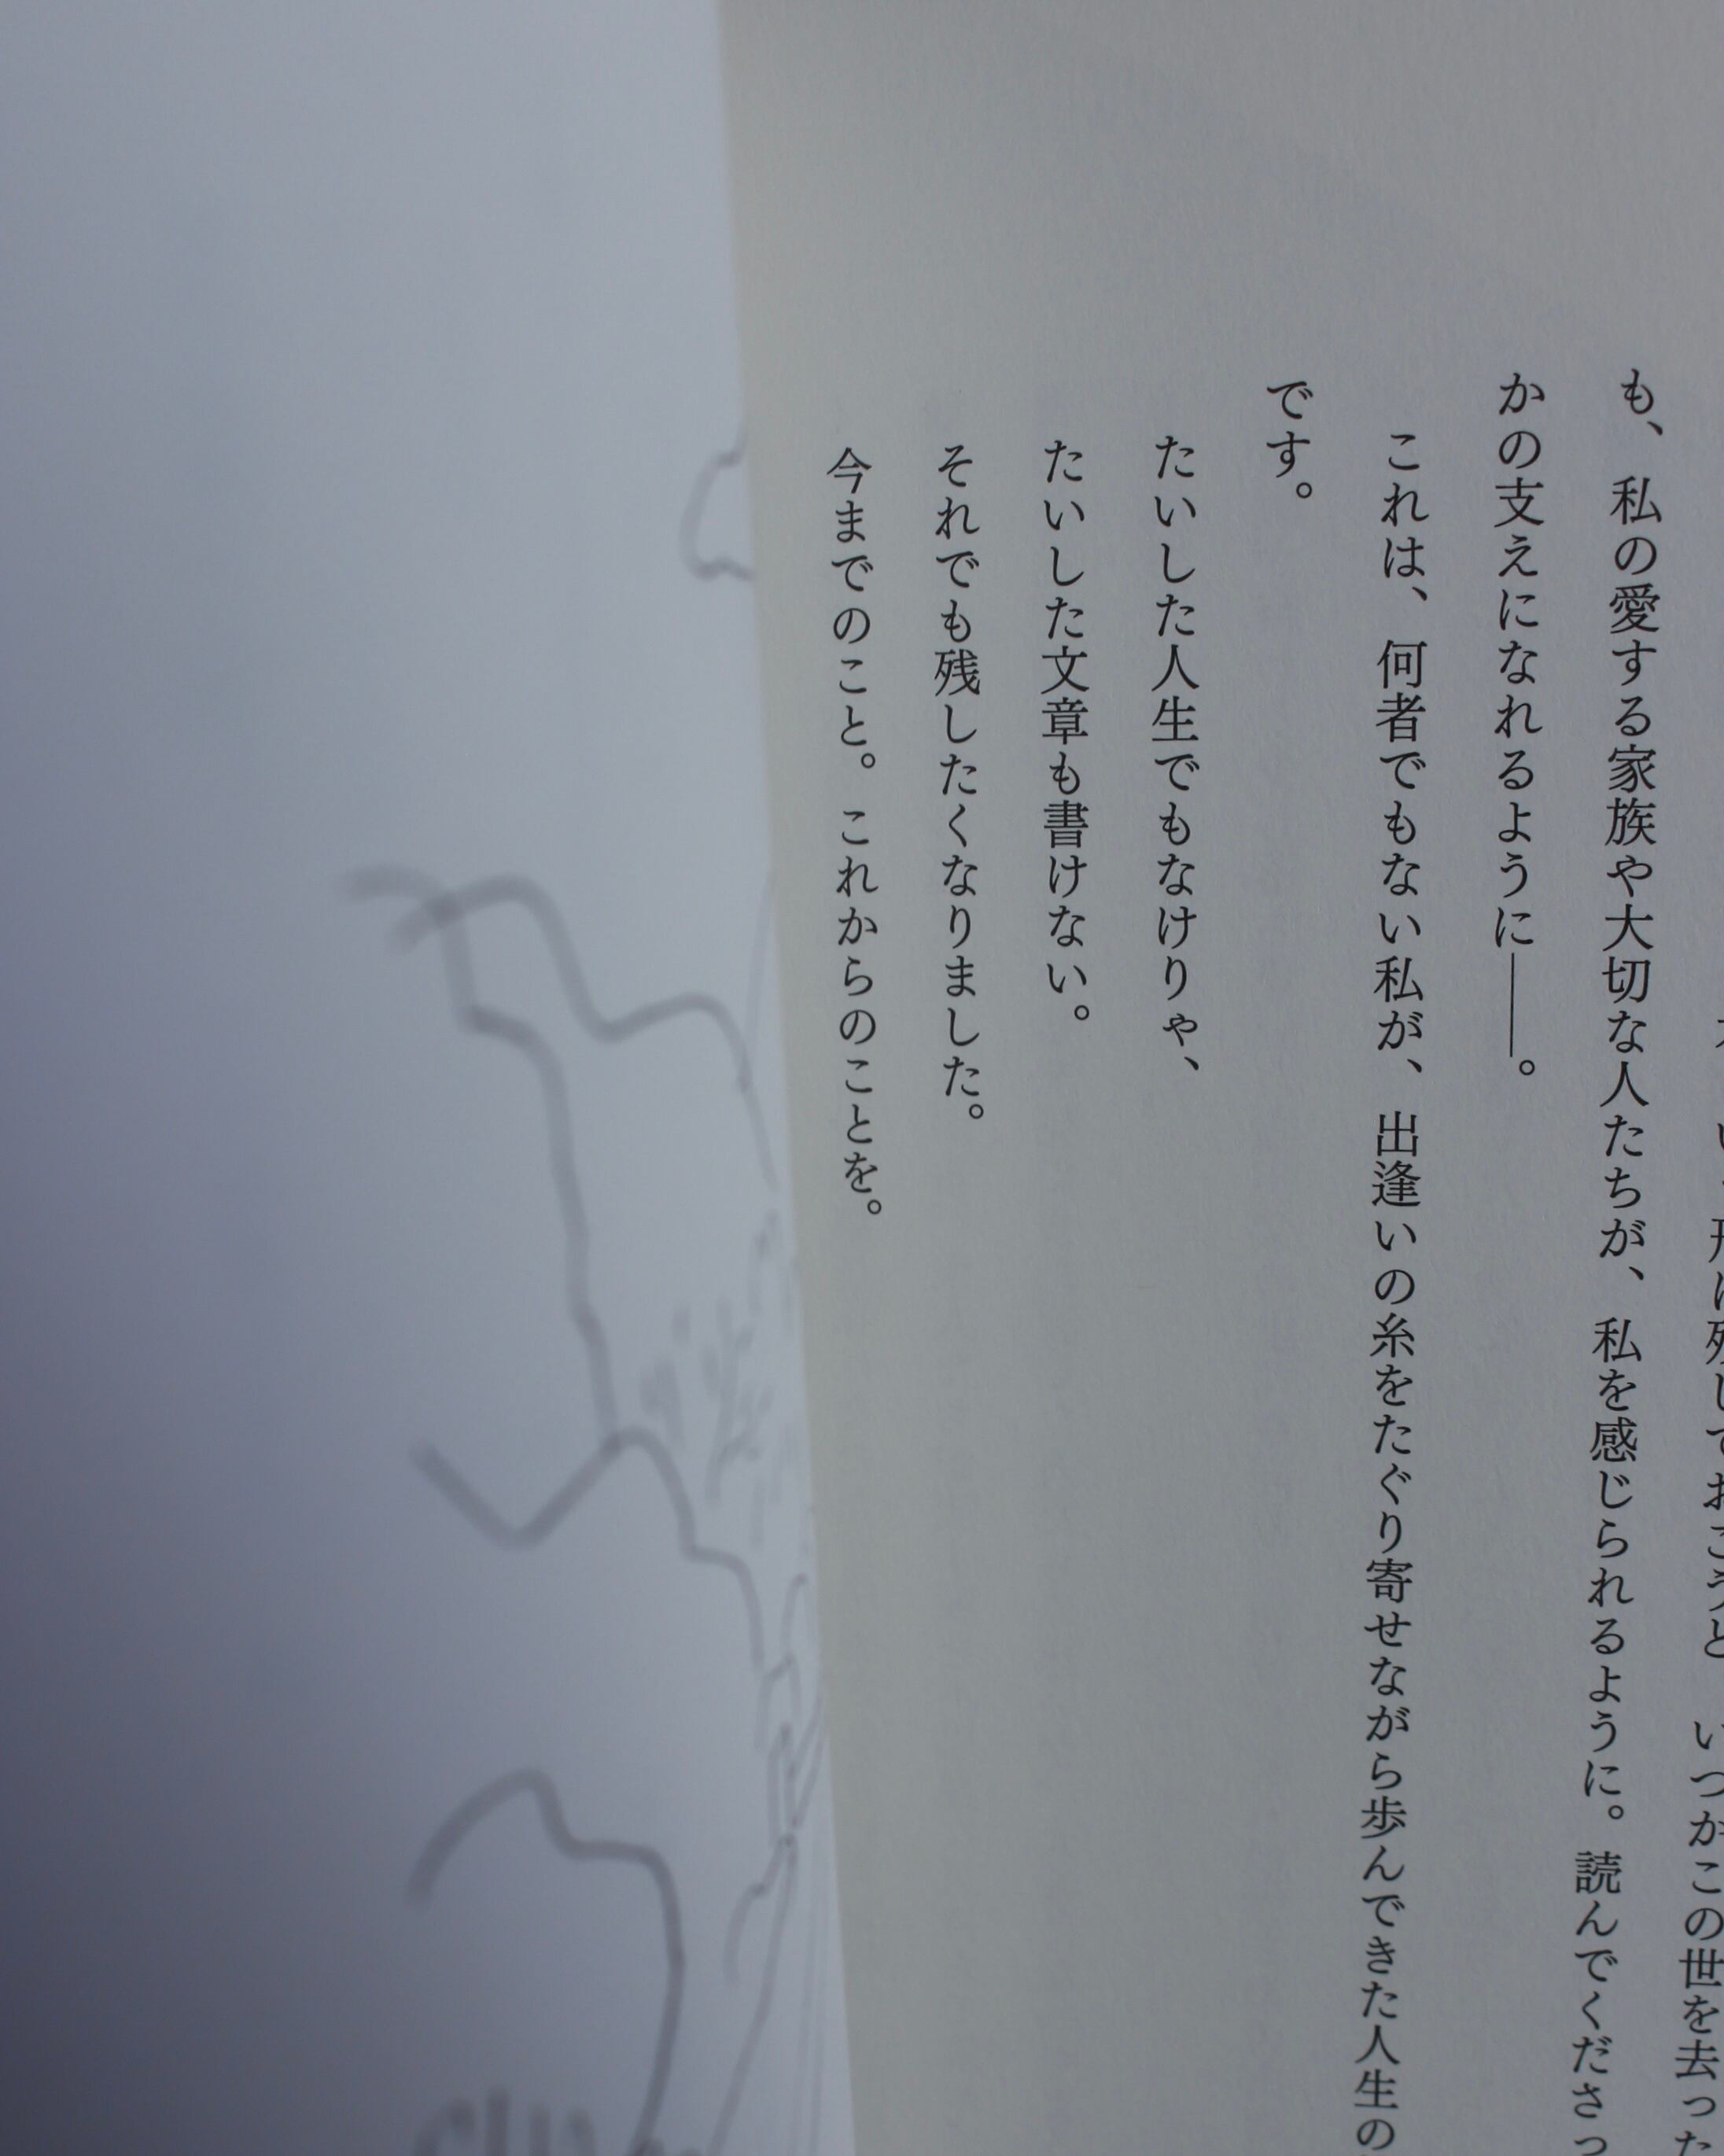 い形に残しておこうと いつかこの世を去った
も、私の愛する家族や大切な人たちが、私を感じられるように。読んでくださっ
かの支えになれるように――。
これは、何者でもない私が、出逢いの糸をたぐり寄せながら歩んできた人生の
です。
たいした人生でもなけりゃ、
たいした文章も書けない。
それでも残したくなりました。
今までのこと。これからのことを。